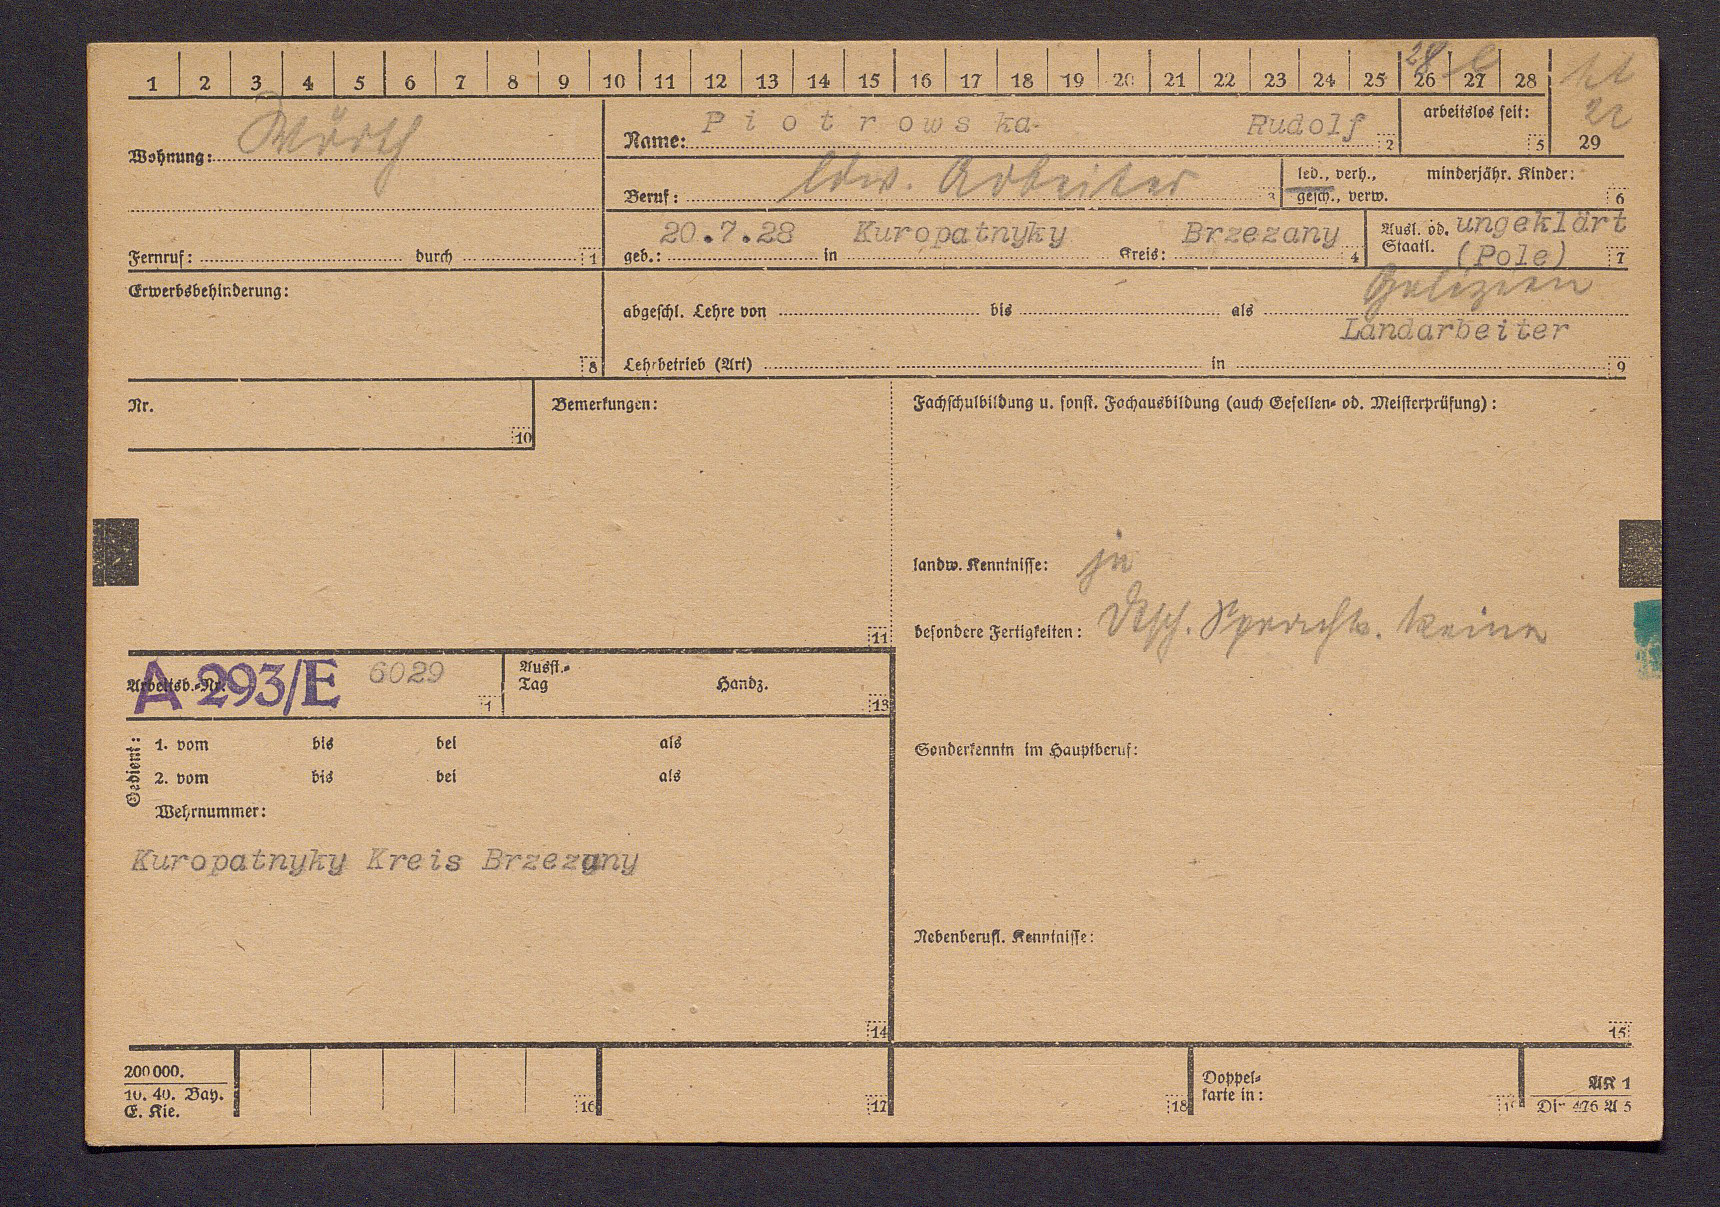 1 2 3 4 5 6 7 8 9 10 11 12 13 14 15 16 17 18 19 20 21 22 23 24 25 26 27 28
28
Wohnung: Wörth
Name: Piotrowska Rudolf 2
arbeitslos seit: 5
29
Beruf: ldw. Arbeiter 3
led., verh., gesch., verw.
minderjähr. Kinder: 6
Fernruf: durch 1
geb.: 20.7.28 in Kuropatnyky Kreis: Brzezany 4
Ausl. od. Staatl. ungeklärt (Pole) 7
Galizien
Erwerbsbehinderung: 8
abgeschl. Lehre von bis als
Landarbeiter
Lehrbetrieb (Art) in 9
Nr. 10
Bemerkungen: 11
Fachschulbildung u. sonst. Fachausbildung (auch Gesellen- od. Meisterprüfung):
landw. Kenntnisse: ja
besondere Fertigkeiten: Dtsch. Sprachk. keine
Arbeitsb.-Nr. A 293/E 6029
Ausst.-Tag Handz. 13
Gedient:
1. vom bis bei als
2. vom bis bei als
Wehrnummer:
Kuropatnyky Kreis Brzezany
14
Sonderkenntn im Hauptberuf:
Nebenberufl. Kenntnisse:
15
200 000.
10. 40. Bay.
E. Kie.
16 17 18
Doppel-
karte in:
AK 1
Din 476 A 5